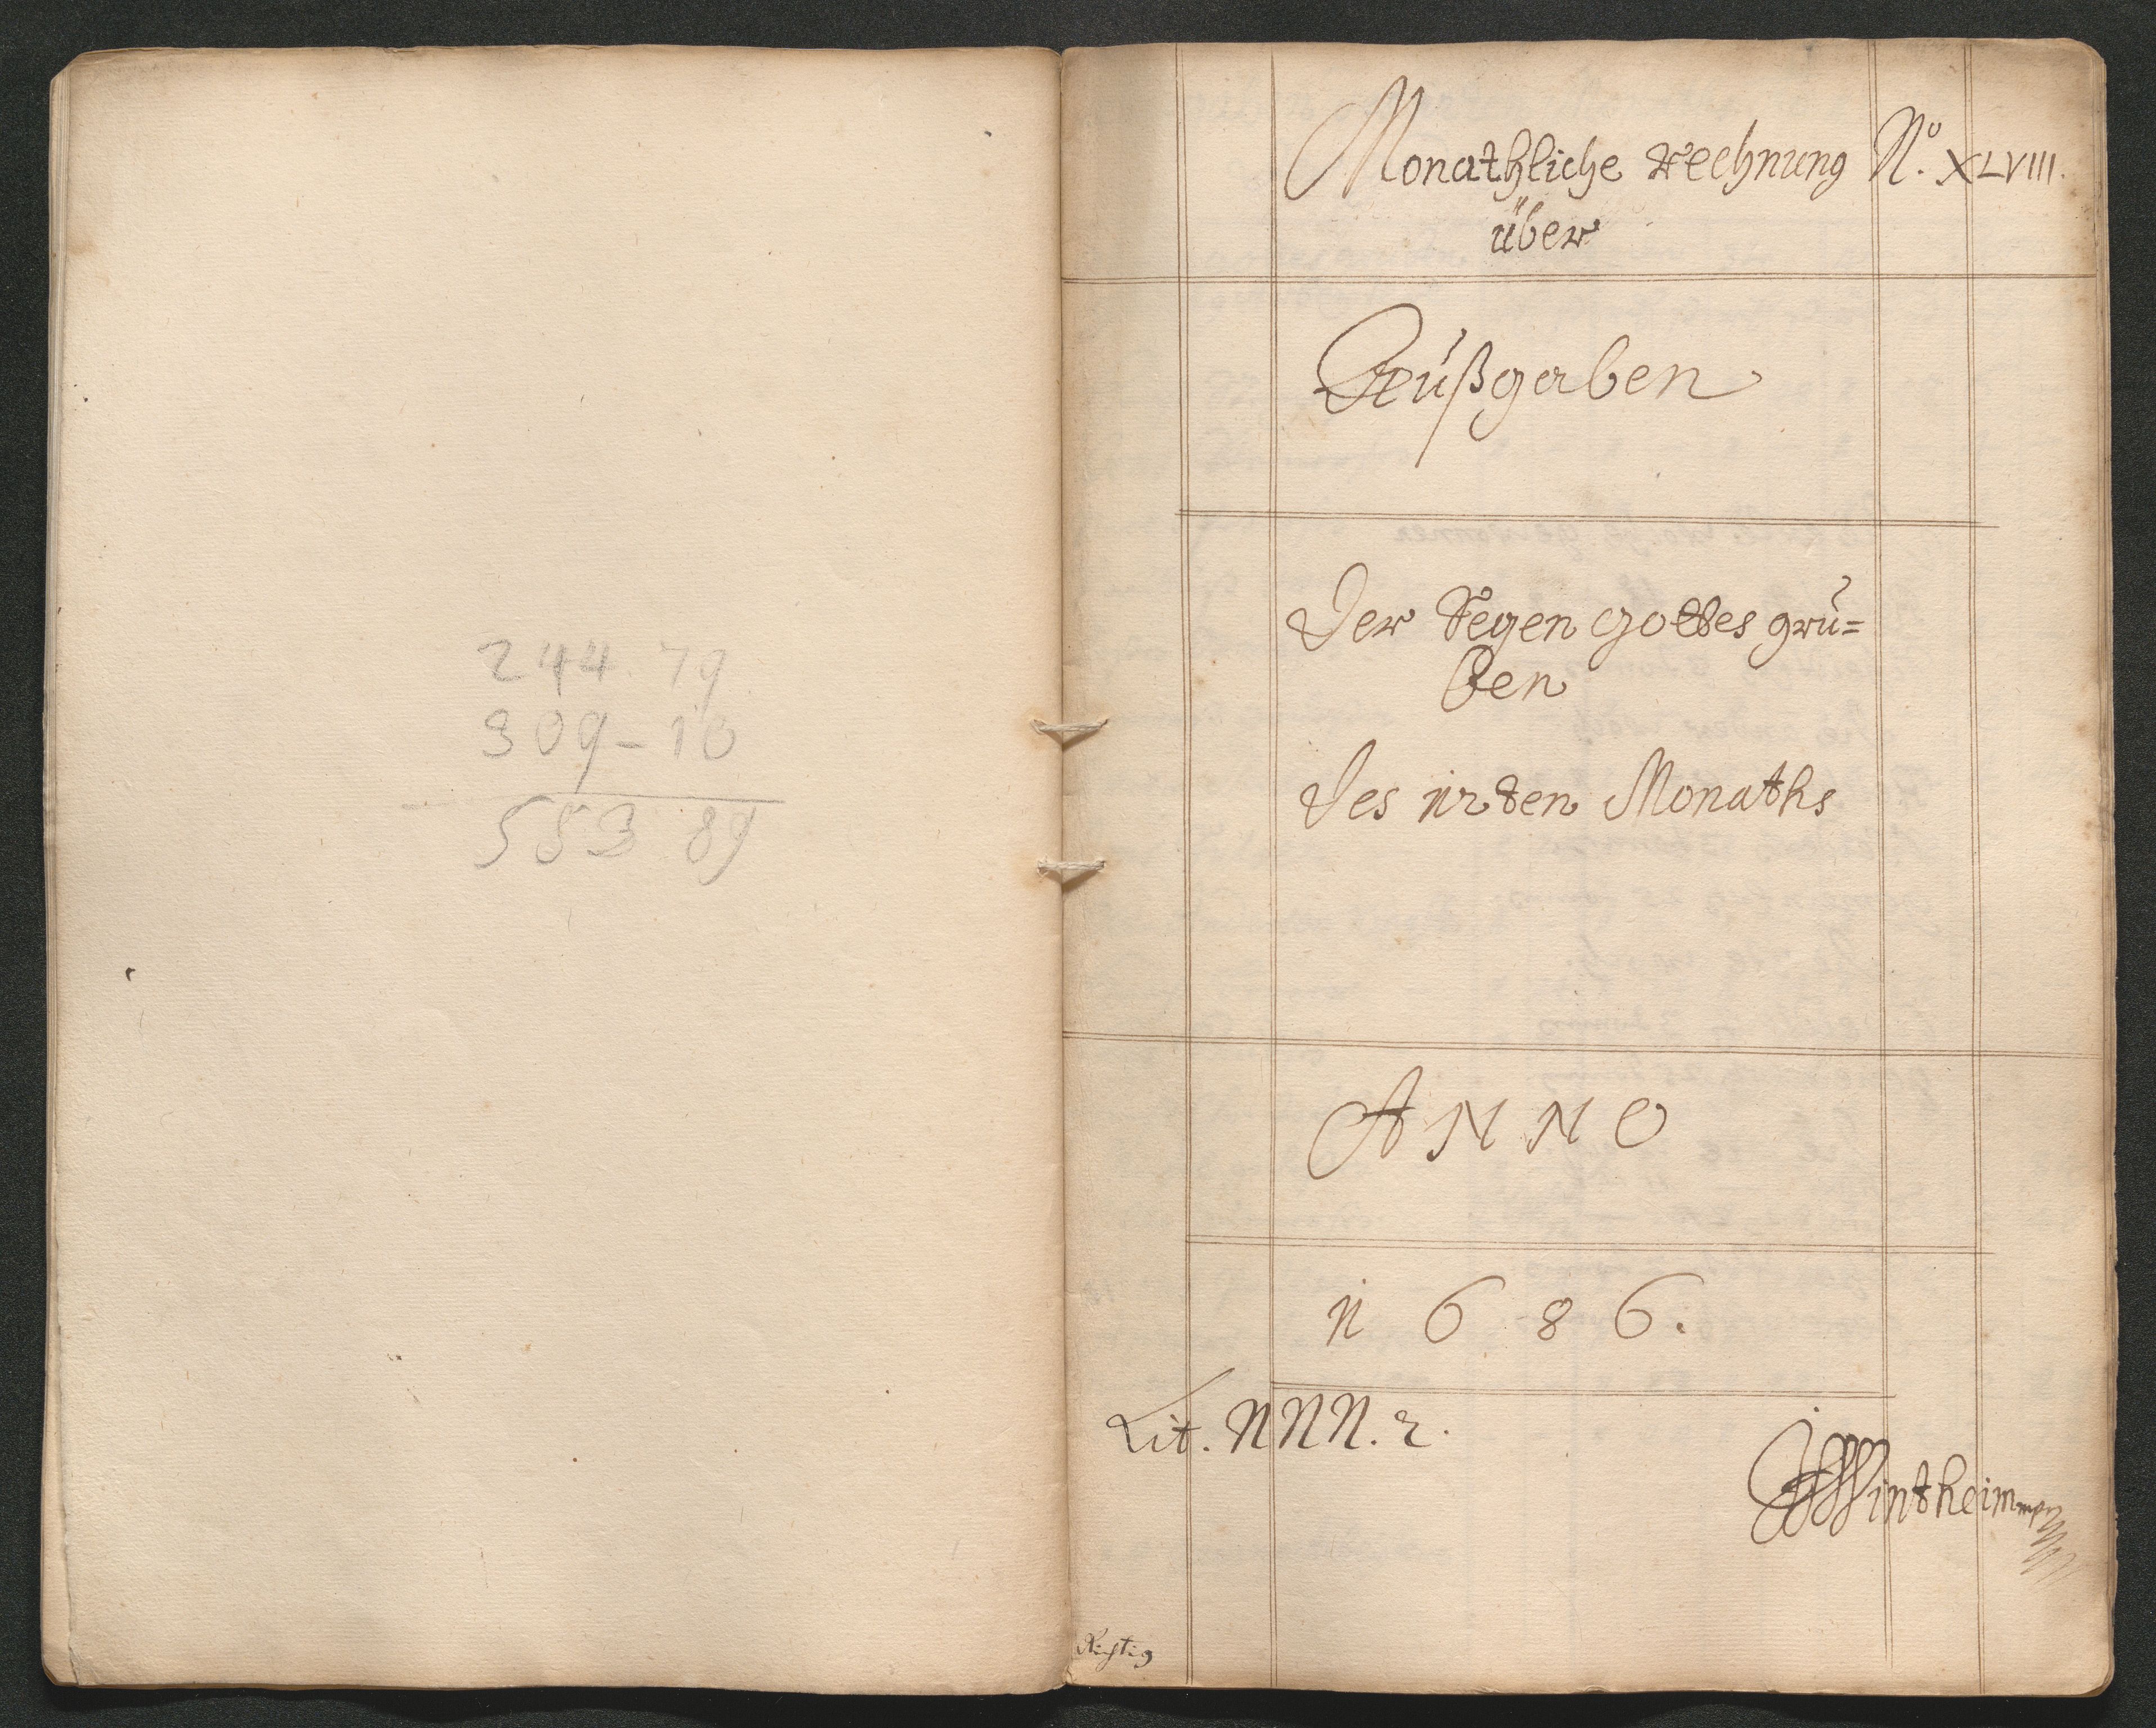 244. 79
309-10
553 89
Monathliche Rechnung No. XLVIII.
über
Außgaben
Der Segen Gottes gru=
ben
Des 12ten Monaths
ANNO
1686.
Lit. NNN. 2.
Wintheim mp
Richtig